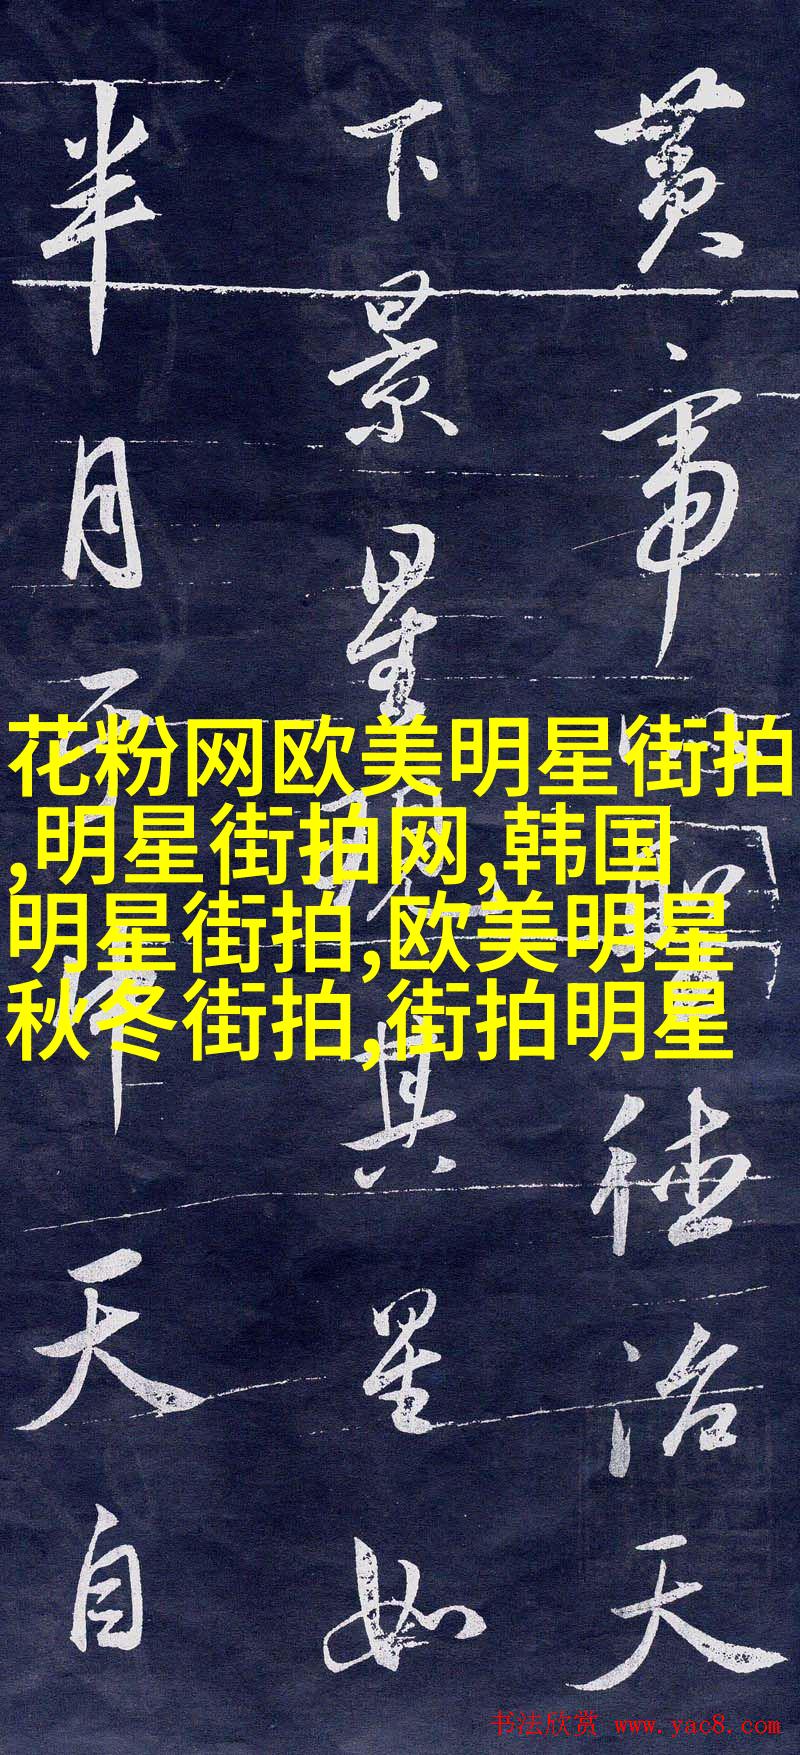 黄帝聖徳治天
下景星現其星如
半月中天自
花粉网欧美明星街拍
,明星街拍网,韩国
明星街拍,欧美明星
秋冬街拍,街拍明星
书法欣赏 www.yac8.com